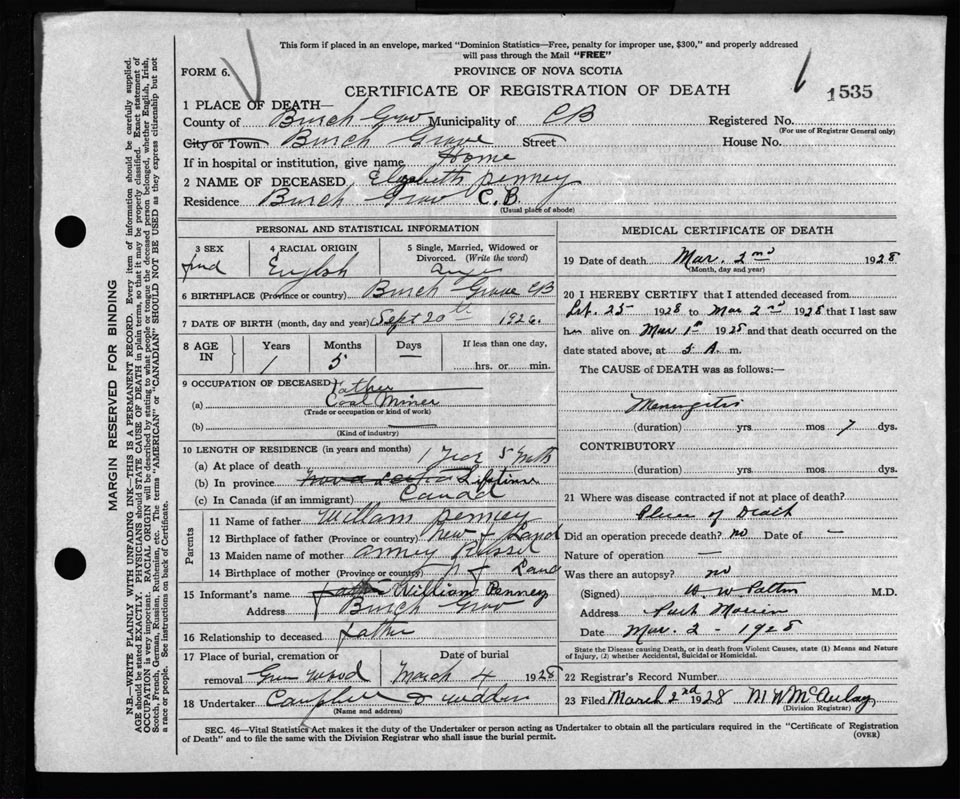 This form if placed in an envelope, marked "Dominion Statistics—Free, penalty for improper use, $300," and properly addressed
will pass through the Mail "FREE"
FORM 6.
PROVINCE OF NOVA SCOTIA
CERTIFICATE OF REGISTRATION OF DEATH
1535
1 PLACE OF DEATH—
County of Burch Grov Municipality of CB Registered No.
(For use of Registrar General only)
City or Town Burch Grove Street House No.
If in hospital or institution, give name Home
2 NAME OF DECEASED Elizabeth Penney
Residence Burch Grov C.B.
(Usual place of abode)
PERSONAL AND STATISTICAL INFORMATION
3 SEX
4 RACIAL ORIGIN
5 Single, Married, Widowed or
Divorced. (Write the word)
English
6 BIRTHPLACE (Province or country) Burch Grove CB
7 DATE OF BIRTH (month, day and year) Sept 20th 1926.
8 AGE IN
Years Months Days If less than one day,
1 5 — hrs. or min.
9 OCCUPATION OF DECEASED Father
(a) Coal Miner
(Trade or occupation or kind of work)
(b) —
(Kind of industry)
10 LENGTH OF RESIDENCE (in years and months)
(a) At place of death 1 Year 5 Mth
(b) In province Nova Scotia Lifetime
(c) In Canada (if an immigrant) Canad
Parents
11 Name of father William Penney
12 Birthplace of father (Province or country) New f Land
13 Maiden name of mother Anney Russel
14 Birthplace of mother (Province or country) N f Land
15 Informant's name William Penney
Address Burch Grov
16 Relationship to deceased father
17 Place of burial, cremation or Date of burial
removal Green Wood March 4 1928
18 Undertaker Campbell &
(Name and address)
MEDICAL CERTIFICATE OF DEATH
19 Date of death Mar. 2nd 1928
(Month, day and year)
20 I HEREBY CERTIFY that I attended deceased from
Feb. 25 1928 to Mar 2nd 1928 that I last saw
her alive on Mar 1st 1928 and that death occurred on
the date stated above, at 5 A. m.
The CAUSE of DEATH was as follows:—
Meningitis
(duration) yrs. mos 7 dys.
CONTRIBUTORY
(duration) yrs. mos. dys.
21 Where was disease contracted if not at place of death?
Place of Death
Did an operation precede death? no Date of —
Nature of operation —
Was there an autopsy? no
(Signed) W. W. Patton M.D.
Address Port Morien
Date Mar. 2 - 1928
State the Disease causing Death, or in death from Violent Causes, state (1) Means and Nature
of Injury, (2) whether Accidental, Suicidal or Homicidal.
22 Registrar's Record Number
23 Filed March 2nd 1928 M W McAulay
(Division Registrar)
SEC. 46—Vital Statistics Act makes it the duty of the Undertaker or person acting as Undertaker to obtain all the particulars required in the "Certificate of Registration
of Death" and to file the same with the Division Registrar who shall issue the burial permit.
(OVER)
MARGIN RESERVED FOR BINDING
N.B.—WRITE PLAINLY WITH UNFADING INK—THIS IS A PERMANENT RECORD. Every item of information should be carefully supplied.
AGE should be stated EXACTLY. PHYSICIANS should STATE CAUSE OF DEATH in plain terms, so that it may be properly classified. Exact statement of
OCCUPATION is very important. RACIAL ORIGIN will be described by stating to what people or tongue the deceased person belonged, whether English, Irish,
Scotch, French, German, Russian, Ruthenian, etc. The terms "AMERICAN" or "CANADIAN" SHOULD NOT BE USED as they express citizenship but not
a race or people. See instructions on back of Certificate.